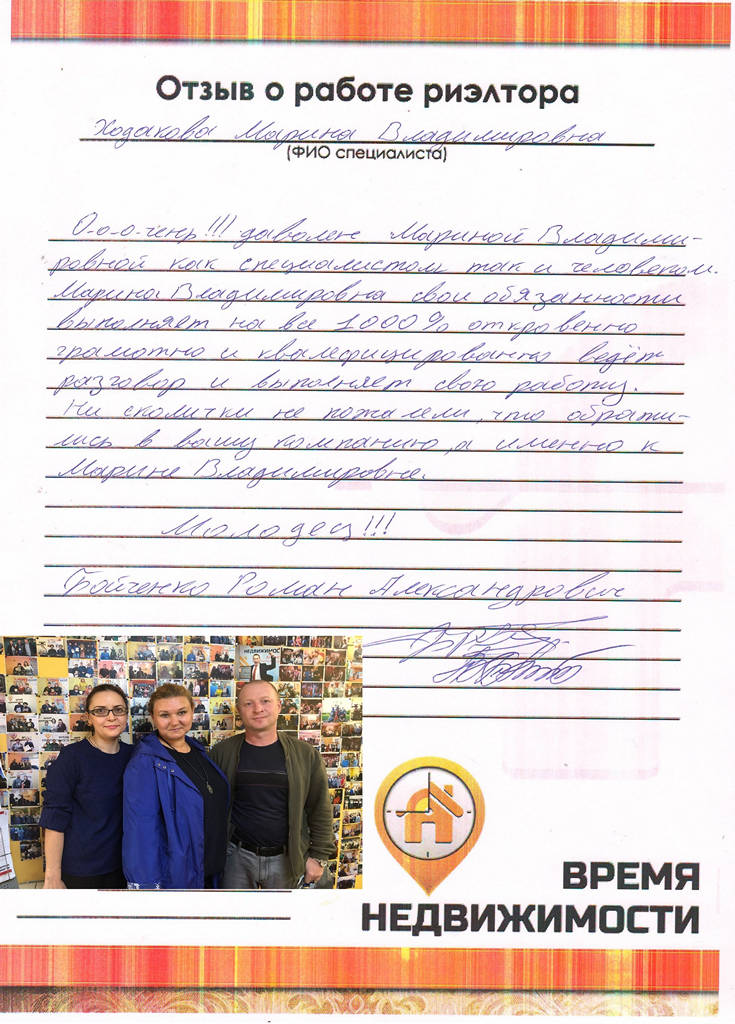 Отзыв о работе риэлтора
Ходакова Марина Владимировна
(ФИО специалиста)
О-о-о-чень!!! даволен Мариной Владими-
ровной как специалистом так и человеком.
Марина Владимировна свои обязанности
выполняет на все 1000% откровенно
грамотно и квалефицированно ведёт
разговор и выполняет свою работу.
Ни сколички не пожалели, что обрати-
лись в вашу компанию, а именно к
Марине Владимировне.
Молодец!!!
Бойченко Роман Александрович
НЕДВИЖИМОС
ВРЕМЯ
НЕДВИЖИМОСТИ